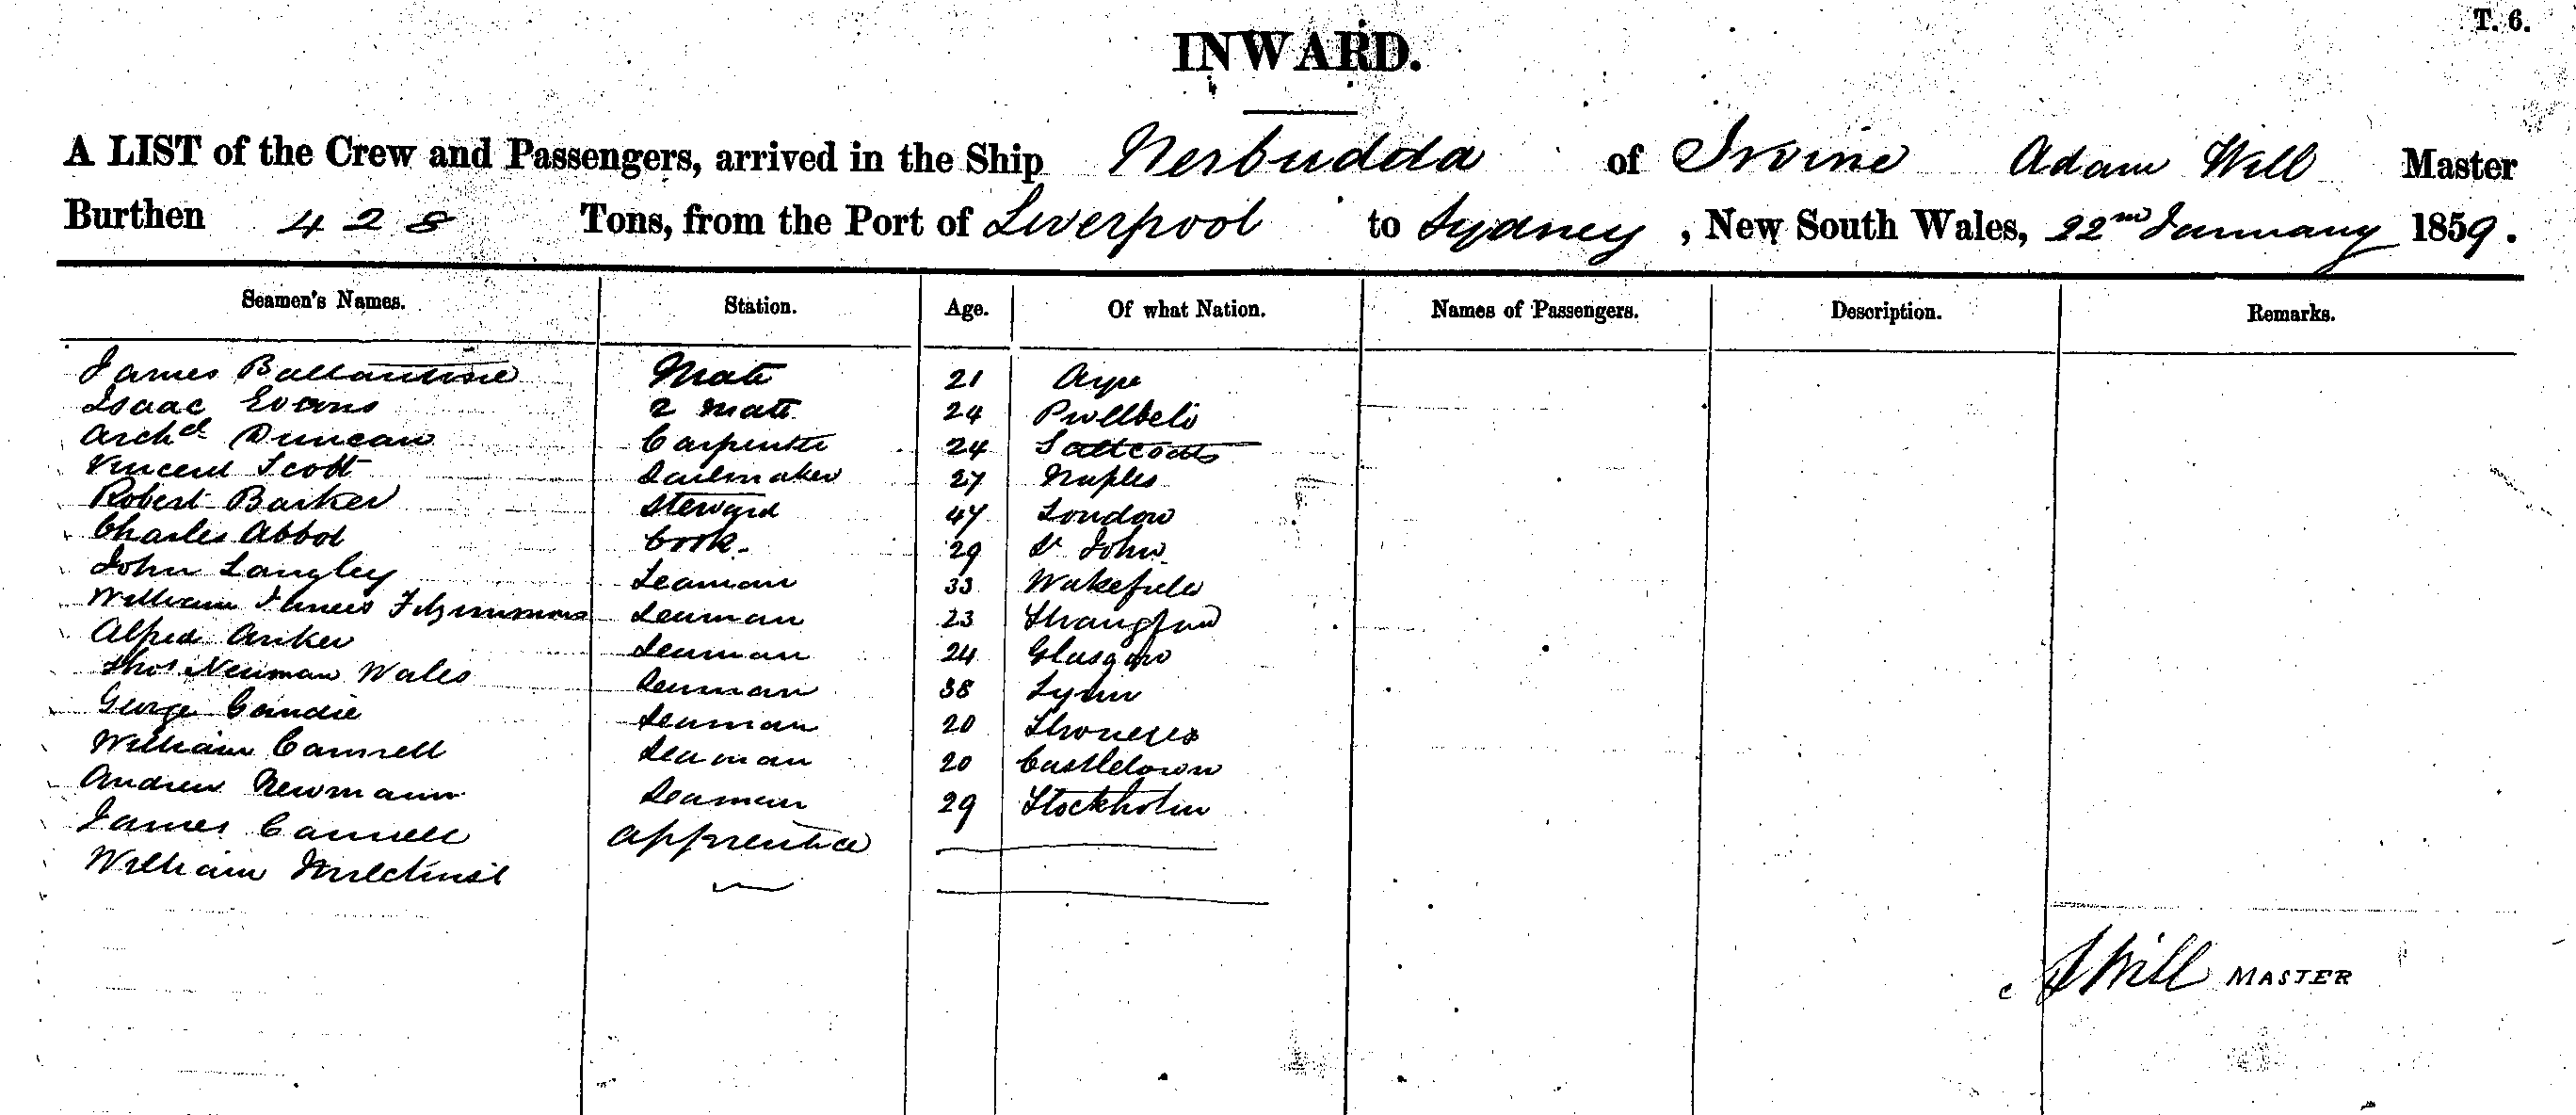 T. 6.
INWARD.
A LIST of the Crew and Passengers, arrived in the Ship Nerbudda of Irvine Adam Will Master
Burthen 428 Tons, from the Port of Liverpool to Sydney, New South Wales, 22nd January 1859.
Seamen's Names. Station. Age. Of what Nation. Names of Passengers. Description. Remarks.
James Ballantine Mate 21 Ayr
Isaac Evans 2 Mate 24 Pwllheli
Archd Duncan Carpenter 24 Saltcoats
Vincent Scott Sailmaker 27 Naples
Robert Barker Steward 47 London
Charles Abbot Cook 29 St John
John Langley Seaman 33 Wakefield
William James Fitzsimmons Seaman 23 Strangford
Alfred Anker Seaman 24 Glasgow
Thos Newman Wales Seaman 38 Lynn
George Candie Seaman 20
William Cannell Seaman 20 Castletown
Andrew Newmann Seaman 29 Stockholm
James Cannell Apprentice
William
AWill MASTER